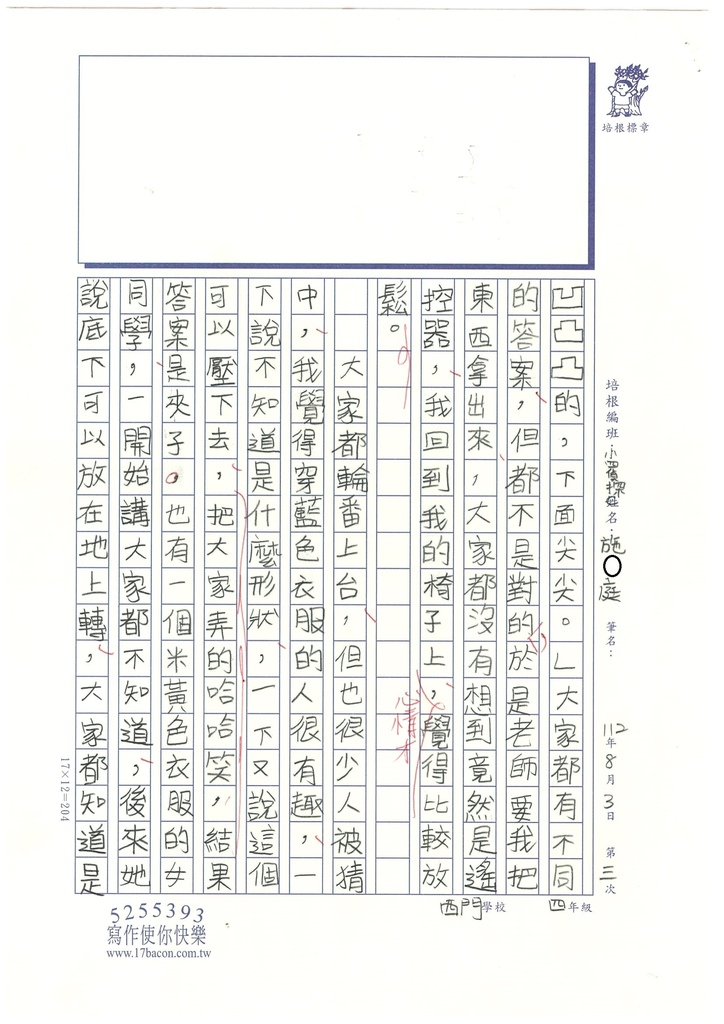 培根標章
培根編班．小單探
姓名．施○庭
筆名：
112年8月3日 第三次
西門學校 四年級
凹凸凸的，下面尖尖。」大家都有不同
的答案，但都不是對的於是老師要我把
東西拿出來，大家都沒有想到竟然是遙
控器，我回到我的椅子上，覺得比較放
鬆。
大家都輪番上台，但也很少人被猜
中，我覺得穿藍色衣服的人很有趣，一
下說不知道是什麼形狀，一下又說這個
可以壓下去，把大家弄的哈哈笑，結果
答案是夾子。也有一個米黃色衣服的女
同學，一開始講大家都不知道，後來她
說底下可以放在地上轉，大家都知道是
心情才
17×12=204
5255393
寫作使你快樂
www.17bacon.com.tw